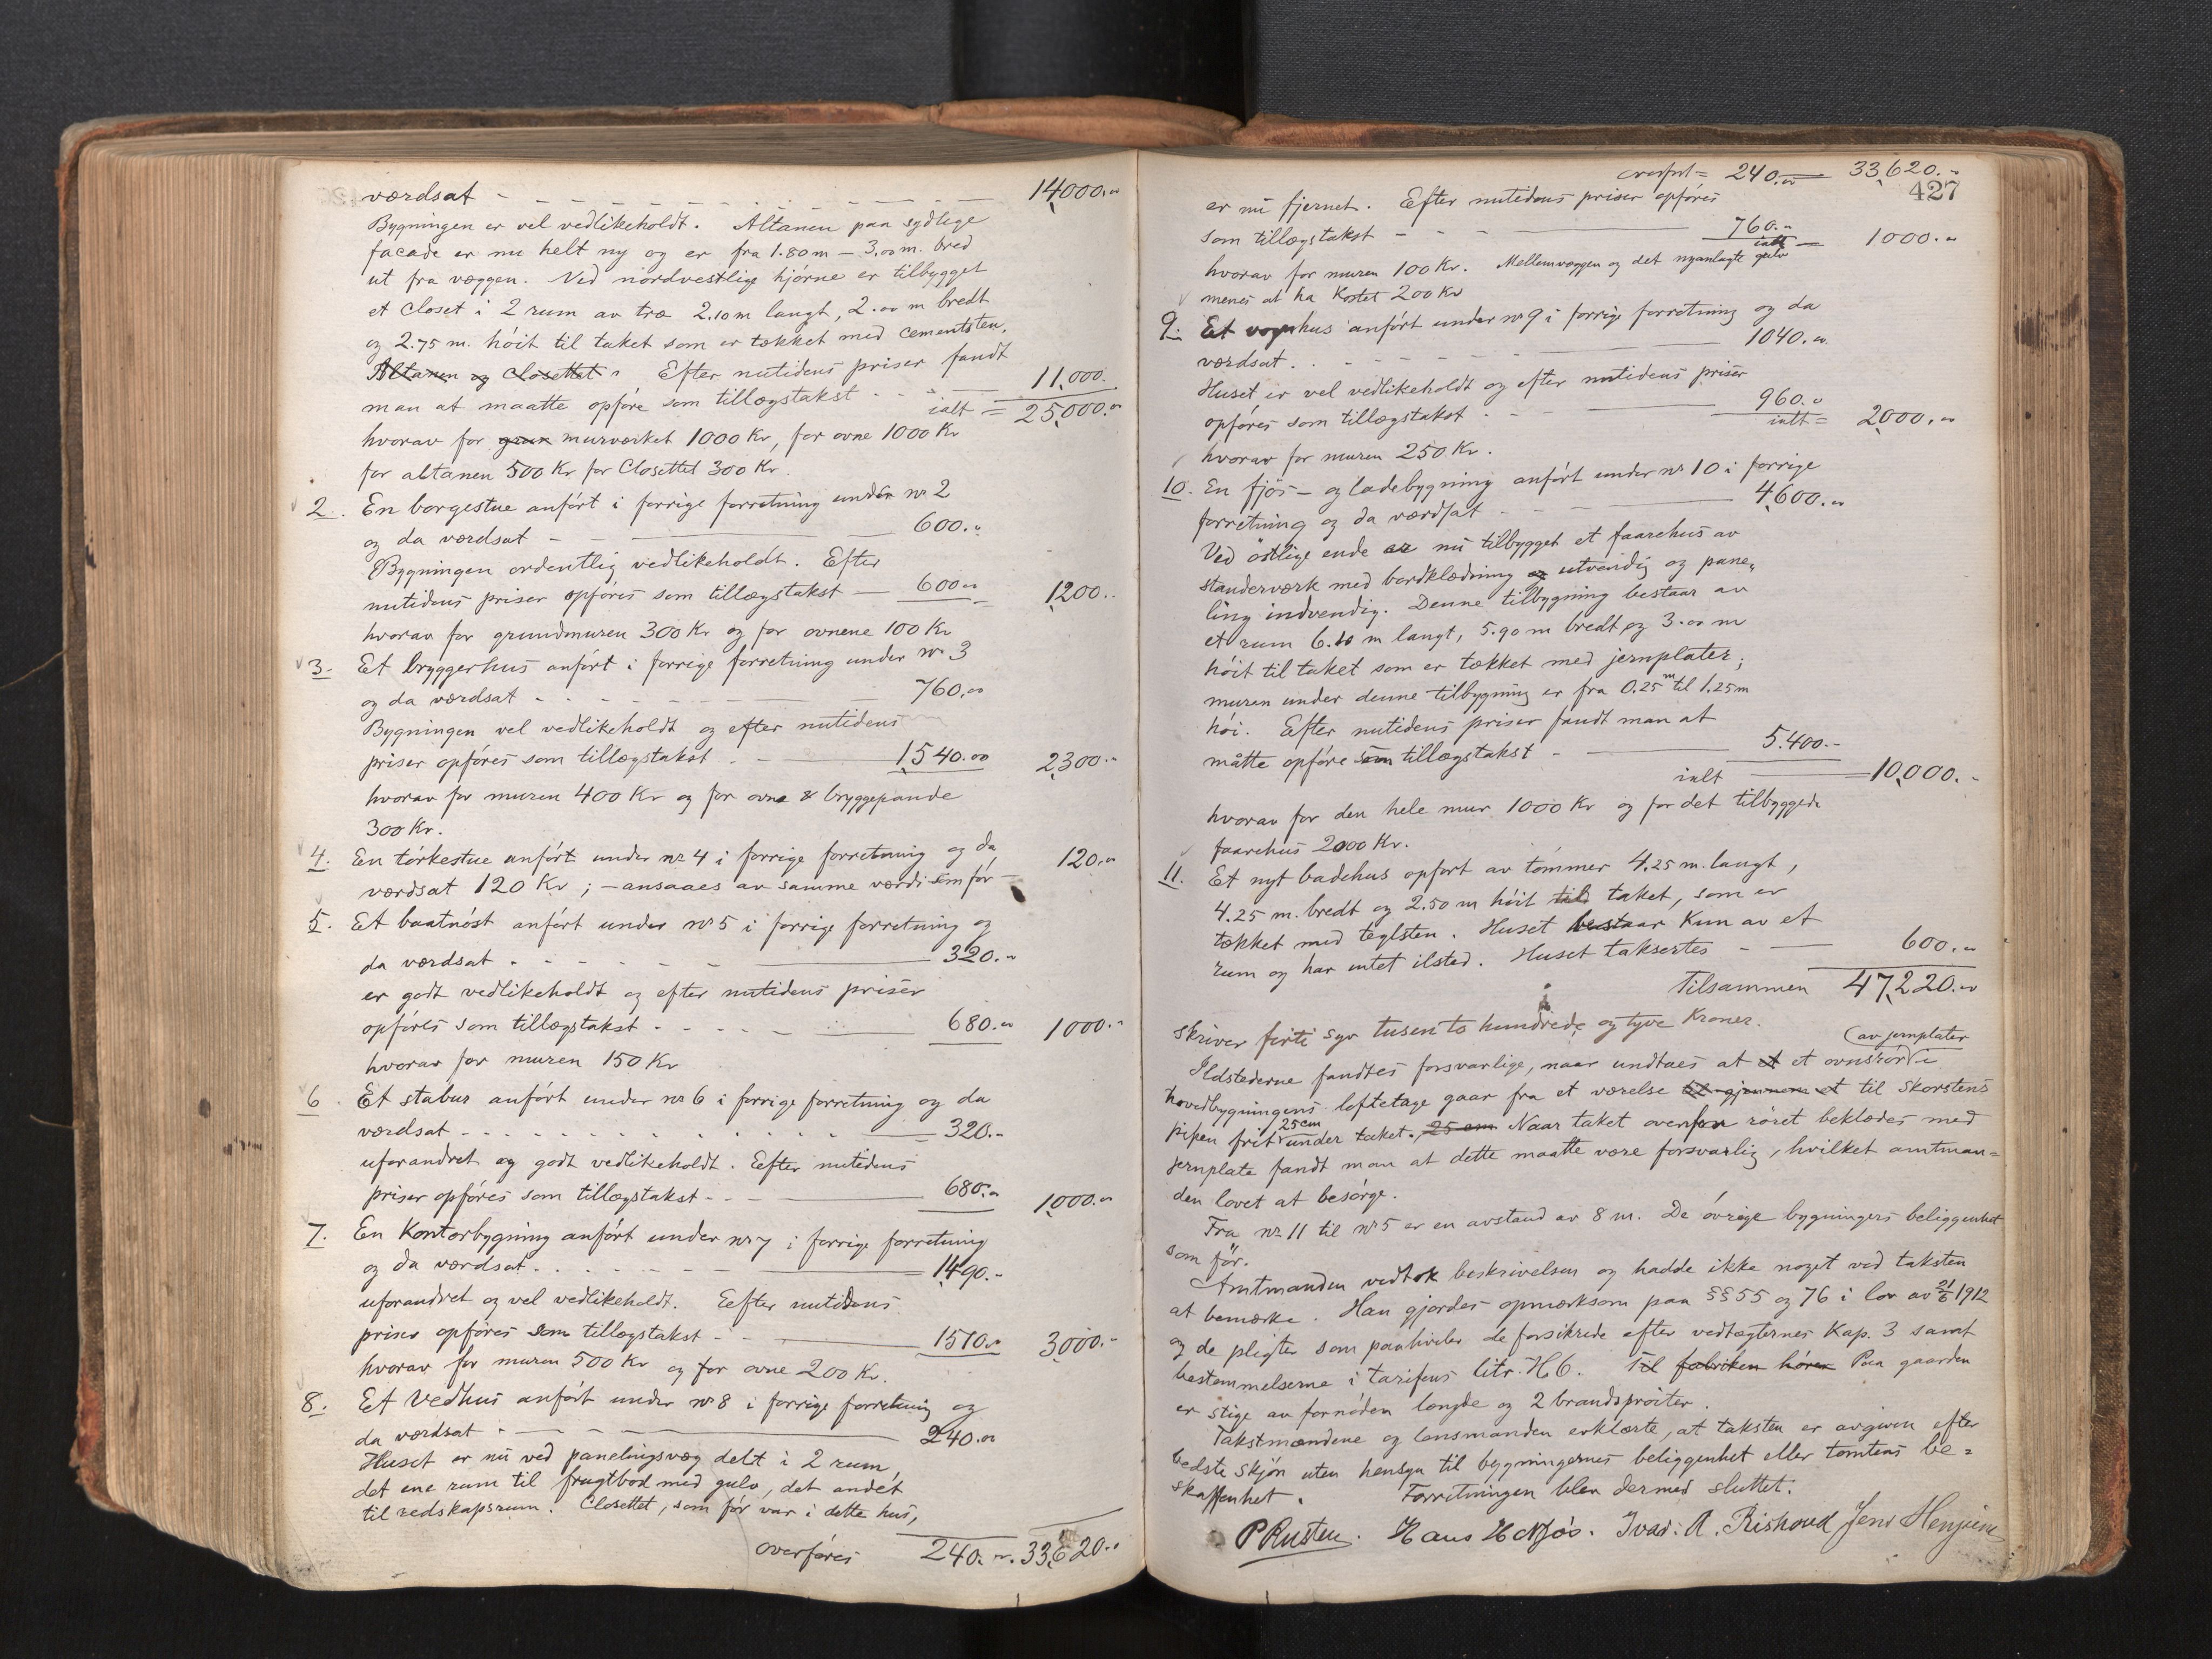 værdsat - 14,000.00
Bygningen er vel vedlikeholdt. Altanen paa sydlige
facade er nu helt ny og er fra 1.80 m - 3.00 m. bred
ut fra væggen. Ved nordvestlige hjørne er tilbygget
et closet i 2 rum av træ 2.10 m langt, 2.00 m bredt
og 2.75 m. høit til taket som er tækket med cementsten.
Altanen og closettet. Efter nutidens priser fandt
man at maatte opføre som tillægstakst - 11,000.
ialt = 25,000.00
hvorav for murværket 1000 Kr, for ovne 1000 Kr
for altanen 500 Kr for Closettet 300 Kr.
2. En borgestue anført i forrige forretning under nr 2
og da værdsat - 600.00
Bygningen ordentlig vedlikeholdt. Efter
nutidens priser opføres som tillægstakst - 600.00 1200..
hvorav for grundmuren 300 Kr og for ovnene 100 Kr
3. Et bryggerhus anført i forrige forretning under nr 3
og da værdsat - 760.00
Bygningen vel vedlikeholdt og efter nutidens
priser opføres som tillægstakst - 1,540.00 2,300.-
hvorav for muren 400 Kr og for ovne & bryggepande
300 Kr.
4. En tørkestue anført under nr 4 i forrige forretning og da
værdsat 120 Kr; - ansaaes av samme værdi som før - 120.00
5. Et baatnøst anført under nr 5 i forrige forretning og
da værdsat - 320.00
er godt vedlikeholdt og efter nutidens priser
opføres som tillægstakst - 680.00 1000.-
hvorav for muren 150 Kr
6. Et stabur anført under nr 6 i forrige forretning og da
værdsat - 320.-
uforandret og godt vedlikeholdt. Eefter nutidens
priser opføres som tillægstakst - 680.00 1,000.00
7. En Kontorbygning anført under nr 7 i forrige forretning
og da værdsat - 1490.-
uforandret og vel vedlikeholdt. Eefter nutidens
priser opføres som tillægstakst - 1510.00 3,000.-
hvorav for muren 500 Kr og for ovne 200 Kr.
8. Et Vedhus anført under nr 8 i forrige forretning og
da værdsat - 240.00
Huset er nu ved panelingsvæg delt i 2 rum,
det ene rum til frugtbod med gulv, det andet
til redskapsrum. Closettet, som før var i dette hus,
overføres 240.00. 33,620..
overført = 240.00 33,620.-
427
er nu fjernet. Efter nutidens priser opføres
som tillægstakst - 760.00
ialt - 1000.00
hvorav for muren 100 Kr. Mellemvæggen og det nyanlagte gulv
menes at ha kostet 200 Kr
9. Et vognhus anført under nr 9 i forrige forretning og da
værdsat. - 1040.00
Huset er vel vedlikeholdt og efter nutidens priser
opføres som tillægstakst - 960.00
ialt = 2,000.00
hvorav for muren 250 Kr.
10. En fjøs- og ladebygning anført under nr 10 i forrige
forretning og da værdsat - 4,600.00
Ved østlige ende er nu tilbygget et faarehus av
standerværk med bordklædning og utvendig og pane-
ling indvendig. Denne tilbygning bestaar av
et rum 6.10 m langt, 5.90 m bredt og 3.00 m
høit til taket som er tækket med jernplater;
muren under denne tilbygning er fra 0.25 m til 1.25 m
høi. Efter nutidens priser fandt man at
måtte opføre som tillægstakst - 5.400.-
ialt = 10,000.-
hvorav for den hele mur 1000 Kr og for det tilbyggede
faarehus 2000 Kr.
11. Et nyt badehus opført av tømmer 4.25 m. langt,
4.25 m. bredt og 2.50 m høit til taket, som er
tækket med teglsten. Huset bestaar kun av et
rum og har intet ilsted. Huset taksertes - 600.00
Tilsammen 47,220.00
skriver førti syv tusen to hundrede og tyve Kroner.
Ildstederne fandtes forsvarlige, naar undtaes at et et ovnsrør (av jernplater i
hovedbygningens loftetage gaar fra et værelse til gjennem et til skorstens
pipen frit 25 cm under taket., 25 cm Naar taket ovenfor røret beklædes med
jernplate fandt man at dette maatte være forsvarlig, hvilket amtman=
den lovet at besørge.
Fra nr 11 til nr 5 er en avstand av 8 m. De øvrige bygningers beliggenhet
som før.
Amtmanden vedtok beskrivelsen og hadde ikke noget ved taksten
at bemærke. Han gjordes opmerksom paa §§ 55 og 76 i lov av 21/6 1912
og de pligter som paahviler de forsikrede efter vedtægternes Kap. 3 samt
bestemmelserne i tarifens litr. H6. Til fabriken hører Paa gaarden
er stige av fornøden længde og 2 brandsprøiter.
Takstmændene og lensmanden erklærte, at taksten er avgiven efter
bedste skjøn uten hensyn til bygningernes beliggenhet eller tomtens be=
skaffenhet. Forretningen blev dermed sluttet.
P Rusten. Hans H Ivar. A. Rishoud Jens Henjum